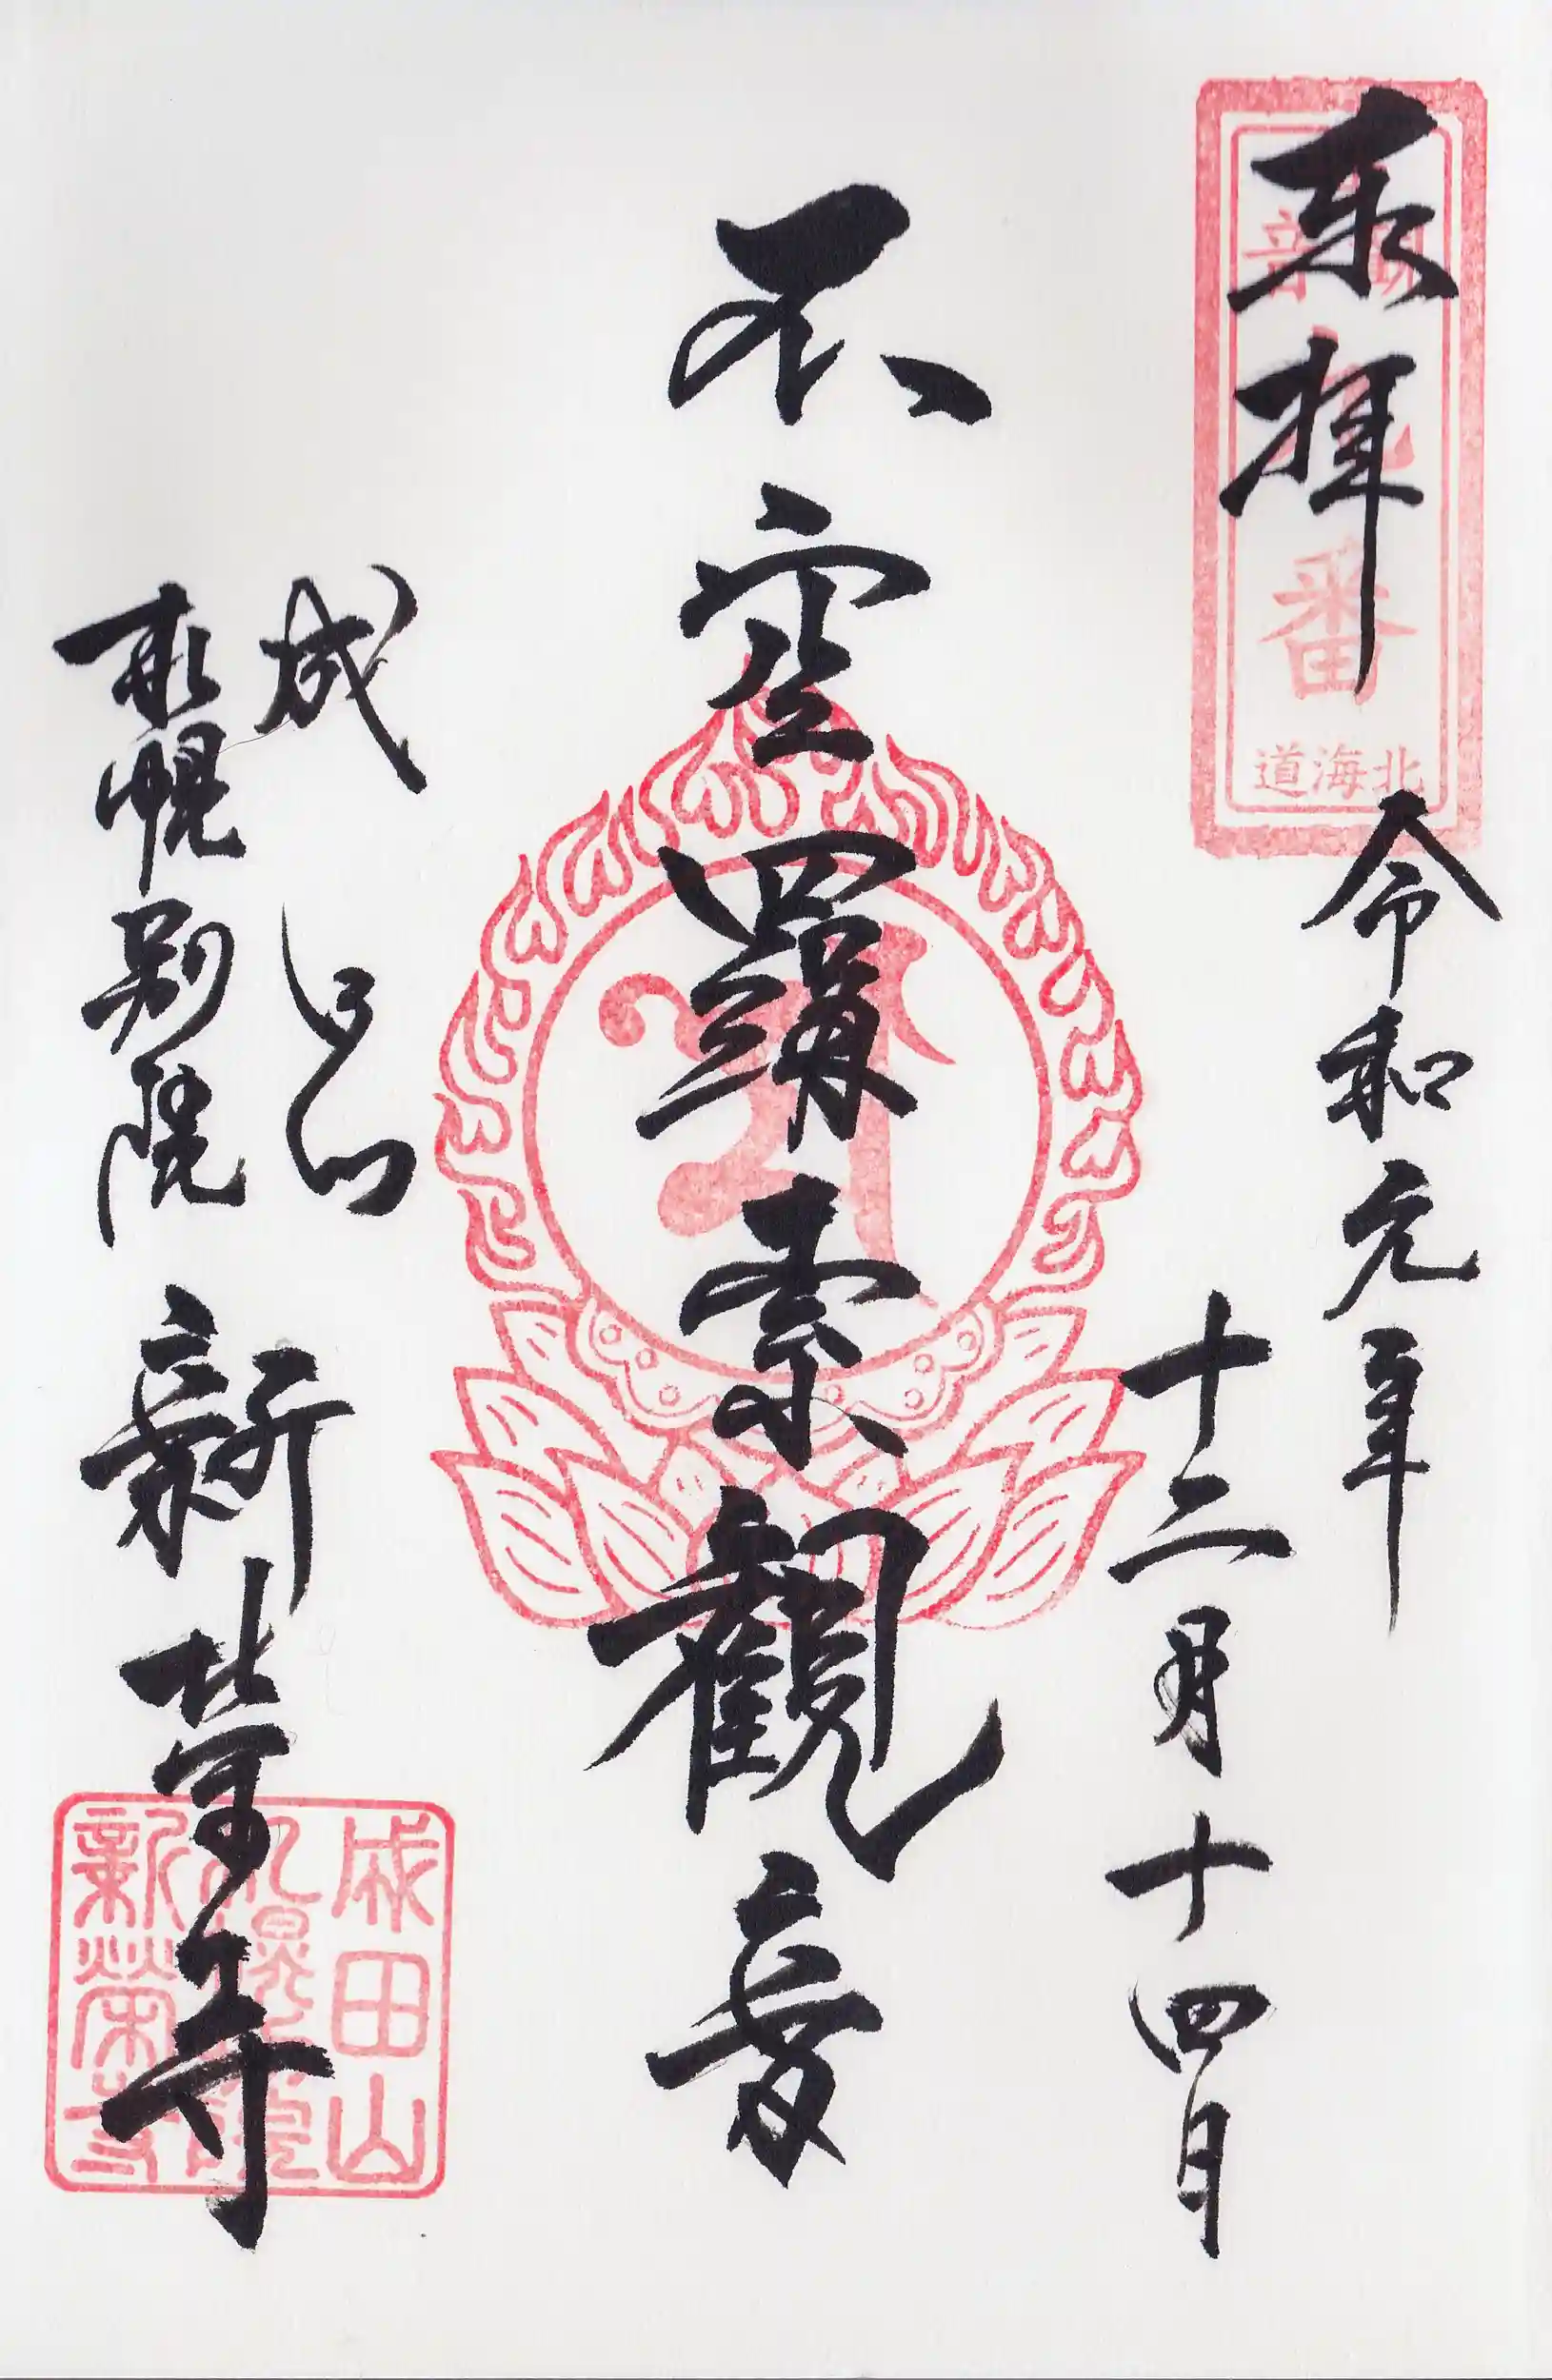 奉拝
令和元年
十二月十四日
不空羂索観音
成田山
札幌別院
新栄寺
番
道海北
成田山
札幌別院
新榮寺